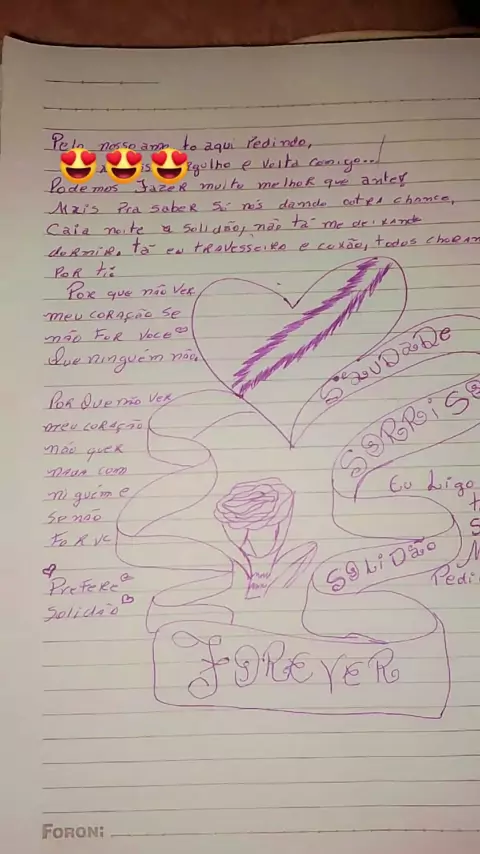 Pelo nosso amo to aqui Pedindo,
gulho e volta comigo...
Podemos Fazer muito melhor que antes
Mais Pra saber Só nós dando outra chance,
Caia noite a solidão, não tá me deixando
dormir. tá eu travesseiro e coxão, todos choran
Por ti
Por que não ver
meu coração Se
não For voce
Que ninguém não
SAUDADE
SORRiSO
Por Que não ver
meu coração
não quer
nada com
ninguém e
Se não
For vc
Eu Ligo
SOLiDÃO
Pedi
Prefere
Solidão
FOREVER
FORONi